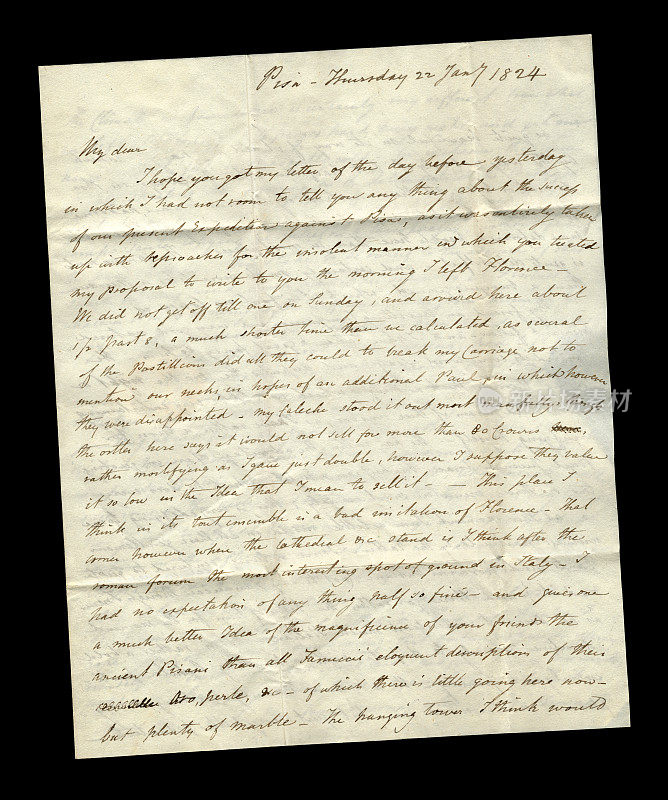 Pisa - Thursday 22 Jany 1824
My dear
I hope you got my letter of the day before yesterday
in which I had not room to tell you any thing about the success
of our present Expedition against Pisa, as it was entirely taken
up with reproaches for the insolent manner in which you treated
my proposal to write to you the morning I left Florence -
We did not get off till one on Sunday, and arrived here about
1/2 past 8, a much shorter time than we calculated, as several
of the Postillions did all they could to break my Carriage not to
mention our necks, in hopes of an additional Paul, in which however
they were disappointed - my Caleche stood it out most manfully, though
the ostler here says it would not sell for more than 80 Crowns
rather mortifying as I gave just double, however I suppose they value
it so low in the Idea that I mean to sell it - - This place I
think in its tout ensemble is a bad imitation of Florence - that
corner however where the Cathedral &c stand is I think after the
roman forum the most interesting spot of ground in Italy - I
had no expectation of any thing half so fine - and gives one
a much better Idea of the magnificence of your friends the
ancient Pisani than all eloquent descriptions of their
oro, perle, &c - of which there is little going here now -
but plenty of marble - The hanging tower I think would
iStock